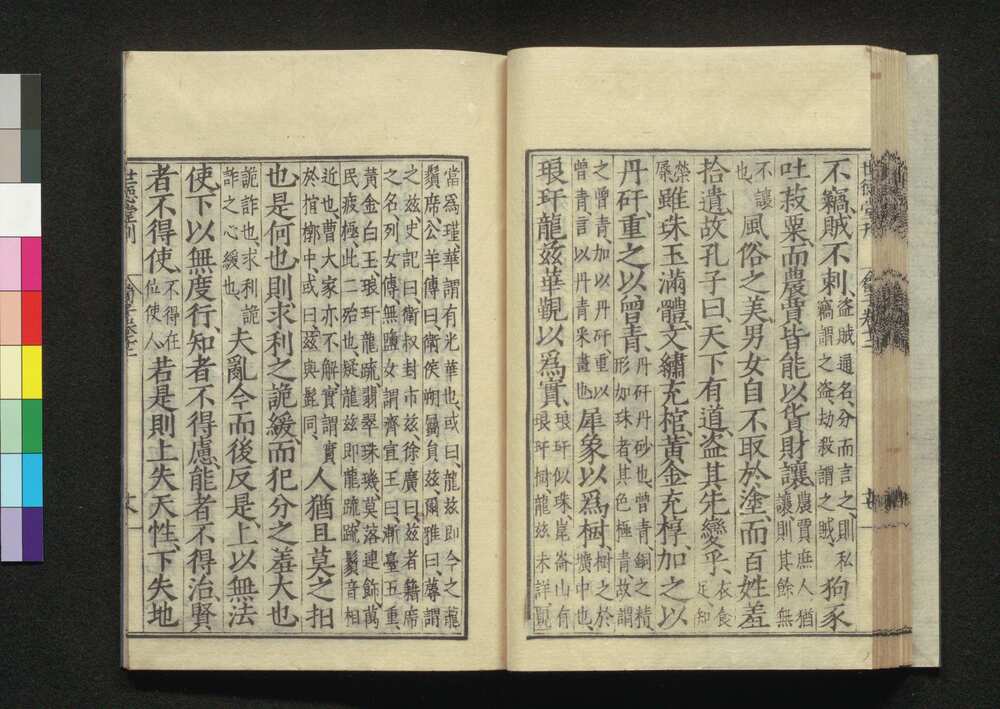 不竊、賊不刺、盜賊通名、分而言之、則私竊謂之盜、劫殺謂之賊、狗豕
吐菽粟、而農賈皆能以貨財讓、農賈庶人猶讓、則其餘無
不讓也、風俗之美、男女自不取於塗、而百姓羞
拾遺、故孔子曰、天下有道、盗其先變乎、衣食足知
榮辱雖珠玉滿體、文繡充棺、黃金充椁、加之以
丹矸、重之以曾青、丹矸丹砂也、曾青銅之精、形如珠者、其色極青、故謂
之曾青、加以丹矸、重以曾青、言以丹青采畫也、犀象以爲樹、樹之於壙中也、
琅玕龍兹華覲以爲實、琅玕似珠、崑崙山有琅玕樹、龍兹未詳、覲
當爲瑾、華謂有光華也、或曰、龍兹即今之龍鬚席、公羊傳曰、衛侯朔屬負兹、爾雅曰、蓐謂
之兹、史記曰、衛叔封布兹、徐廣曰、兹者籍席之名、列女傳、無鹽女謂齊宣王曰、漸臺五重、
黃金白玉、琅玕龍疏、翡翠珠璣、莫落連飾、萬民疲極、此二殆也、疑龍兹即龍疏、疏鬚音相
近也、曹大家亦不解、實謂實於棺槨中、或曰、兹與髭同、人猶且莫之抇
也、是何也、則求利之詭緩、而犯分之羞大也
詭詐也、求利詭詐之心緩也、夫亂今而後反是、上以無法
使、下以無度行、知者不得慮、能者不得治、賢
者不得使、不得在位使人、若是則上失天性、下失地